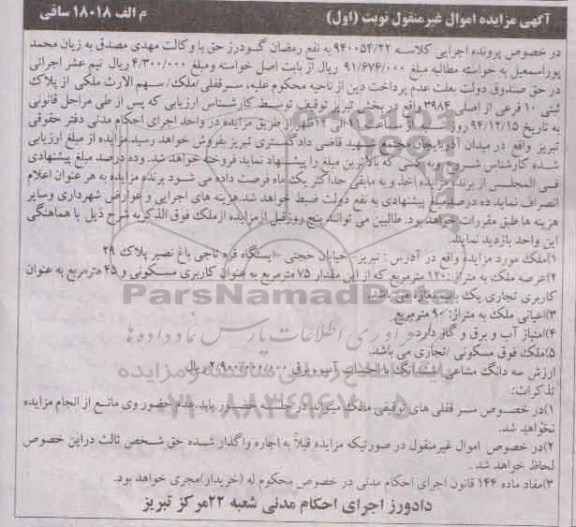 آگهی مزایده اموال غیرمنقول نوبت (اول) م الف ۱۸۰۱۸ ساقی
در خصوص پرونده اجرایی کلاسه ۹۴۰۰۵۴/۲۲ به نفع رمضان گودرز حق با وکالت مهدی مصدق به زیان محمد
پوراسمعیل به خواسته مطالبه مبلغ ۹۱/۶۷۴/۰۰۰ ریال از بابت اصل خواسته ومبلغ ۴/۳۰۰/۰۰۰ ریال نیم عشر اجرائی
در حق صندوق دولت بعلت عدم پرداخت دین از ناحیه محکوم علیه، سرقفلی/املک/سهم الارث ملکی از پلاک
ثبتی ۱۰ فرعی از اصلی ۳۹۸۴ واقع در بخش تبریز توقیف توسط کارشناس ارزیابی که پس از طی مراحل قانونی
به تاریخ ۹۴/۱۲/۱۵ روز ساعت الی ۱۲ظهر از طریق مزایده در واحد اجرای احکام مدنی دفتر حقوقی
تبریز واقع در میدان آذربایجان مجتمع شهید قاضی دادگستری تبریز بفروش خواهد رسید.مزایده از مبلغ ارزیابی
شده کارشناس شروع وبه کسی که بالاترین مبلغ را پیشنهاد نماید فروخته خواهد شد.وده درصد مبلغ پیشنهادی
فی المجلس از برنده مزایده اخذ و به مابقی حداکثر یک ماه فرصت داده می شود برنده مزایده به هر عنوان اعلام
انصراف نماید ده درصد مبلغ پیشنهادی به نفع دولت ضبط خواهد شد.هزینه های اجرایی و عوارض شهرداری وسایر
هزینه ها طبق مقررات خواهد بود. طالبین می توانند پنج روز قبل از مزایده از ملک فوق الذکر به شرح ذیل با هماهنگی
این واحد بازدید نمایند.
۱)ملک مورد مزایده واقع در آدرس : تبریز- خیابان حجتی -ایستگاه قره تاجی باغ نصیر پلاک ۲۹
۲)عرصه ملک به متراژ:۱۲۰ مترمربع که از این مقدار ۷۵ مترمربع به عنوان کاربری مسکونی و ۴۵ مترمربع به عنوان
کاربری تجاری یک باب مغازه می باشد.
۳)اعیانی ملک به متراژ: ۹۰ مترمربع
۴)امتیاز آب و برق و گاز دارد.
۵)ملک فوق مسکونی /تجاری می باشد.
ارزش سه دانگ مشاعی ششدانگ با احتساب آب و برق ۲/۹۰۰/۰۰۰/۰۰۰ ریال
تذکرات:
۱)در خصوص سر قفلی های توقیفی مالک میتواند در جلسه حضور یابد.عدم حضور وی مانع از انجام مزایده
نخواهد شد.
۲)در خصوص اموال غیرمنقول در صورتیکه مزایده قبلاً به اجاره واگذار شده حق شخص ثالث دراین خصوص
لحاظ خواهد شد .
۳)مفاد ماده ۱۴۴ قانون اجرای احکام مدنی در خصوص محکوم له (خریدار)مجری خواهد بود.
دادورز اجرای احکام مدنی شعبه ۲۲مرکز تبریز
ParsNamadData